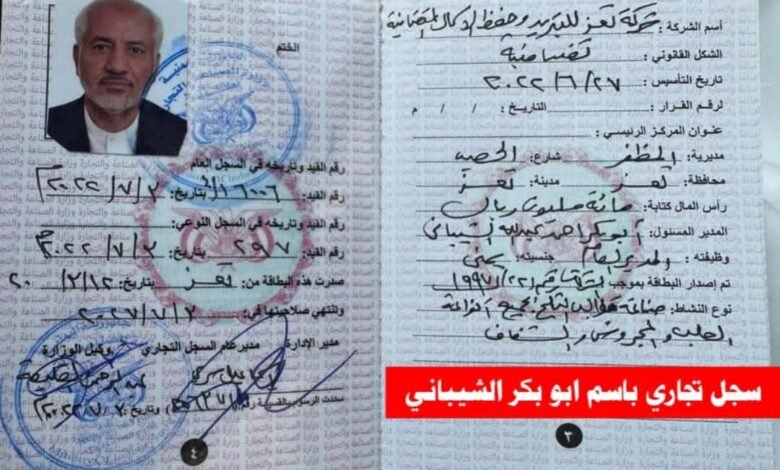 اسم الشركة: شركة تعز للتبريد وحفظ الاسماك
الشكل القانوني: تضامنية
تاريخ التأسيس: ٢٠٢٢/٦/٢٧
رقم القرار: التاريخ: / / م
عنوان المركز الرئيسي:
مديرية: المظفر شارع: الحصب
محافظة: تعز مدينة: تعز
رأس المال كتابة: مائة مليون ريال
المدير المسئول: أبوبكر احمد عبدالله الشيباني
وظيفته: المدير العام جنسيته: يمني
تم إصدار البطاقة بموجب (٢٢) ١٩٩٧م
نوع النشاط: صناعة قوالب الثلج
الصلب و المجروش و الشفاف
سجل تجاري باسم ابو بكر الشيباني
٣
الختم
رقم القيد وتاريخه في السجل العام
رقم القيد: بتاريخ: ٢٠٢٢/٧/٣م
رقم القيد وتاريخه في السجل النوعي:
رقم القيد: ٢٩٧ بتاريخ: ٢٠٢٢/٧/٣م
صدرت هذه البطاقة من: تعز بتاريخ: ٢٠
وتنتهي صلاحيتها في: ٢٠٢٧/٧/٢
مدير الإدارة مدير عام السجل التجاري وكيل الوزارة
سددت الرسوم بالقسيمة رقم وتاريخ:
٤